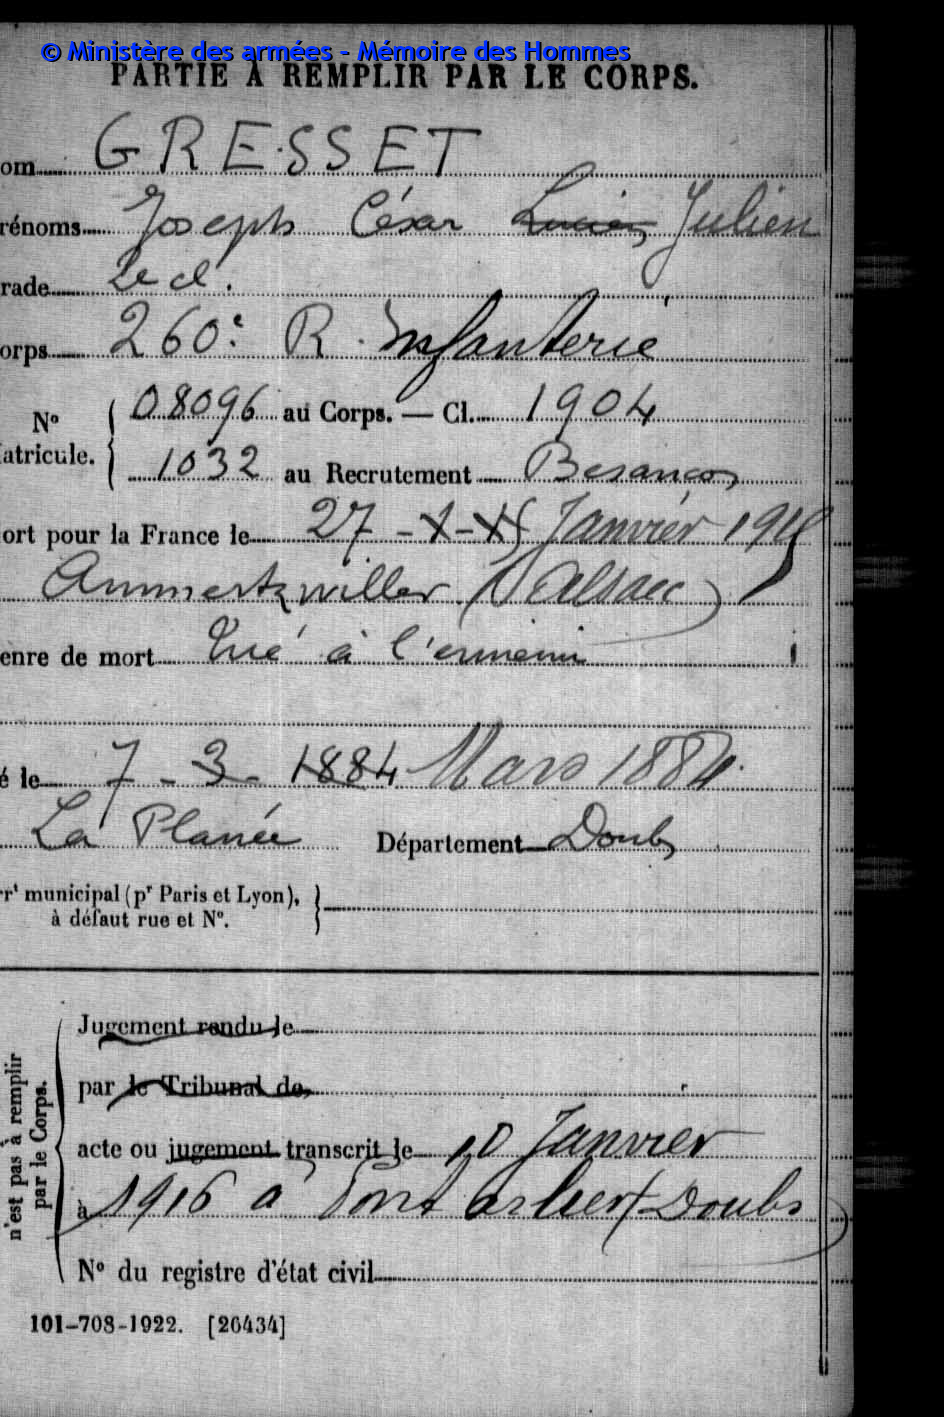 © Ministère des armées - Mémoire des Hommes
PARTIE À REMPLIR PAR LE CORPS.
om GRESSET
rénoms Joseph César Lucien Julien
rade 2e cl.
orps 260e R. Infanterie
N° 08096 au Corps. — Cl. 1904
atricule. 1032 au Recrutement Besançon
ort pour la France le 27 - 1 - 15 Janvier 1915
Ammertzwiller (Alsace)
enre de mort Tué à l'ennemi
é le 7 - 3 - 1884 Mars 1884.
La Planée Département Doubs
rrt municipal (pr Paris et Lyon),
à défaut rue et N°.
n'est pas à remplir
par le Corps.
Jugement rendu le
par le Tribunal de
acte ou jugement transcrit le 10 Janvier
à 1916 à Pontarlier (Doubs)
N° du registre d'état civil
101-708-1922. [26434]